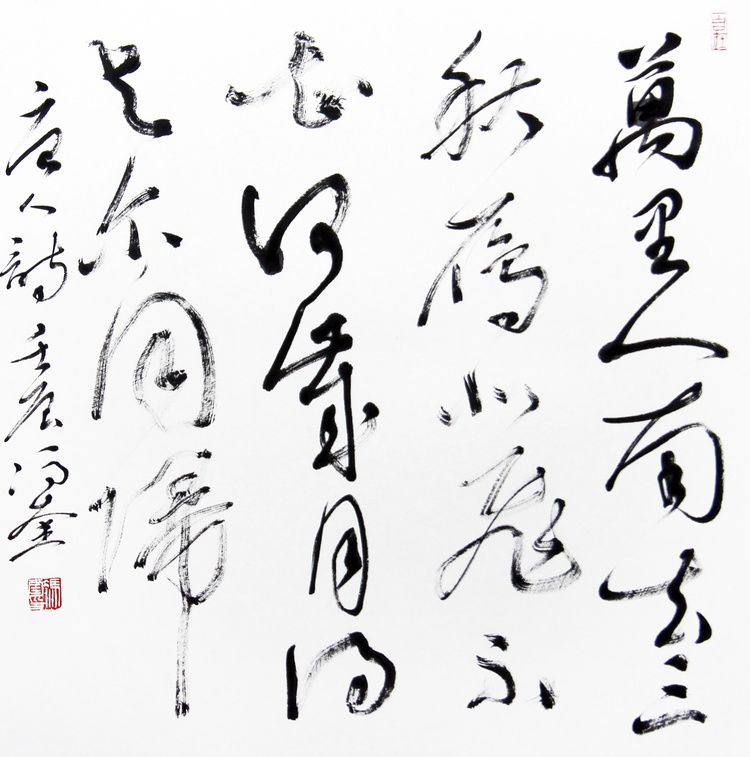 萬里人南去三
秋鴈北飛不
知何歲月得
与尔同歸
唐人詩 壬辰 冯奎